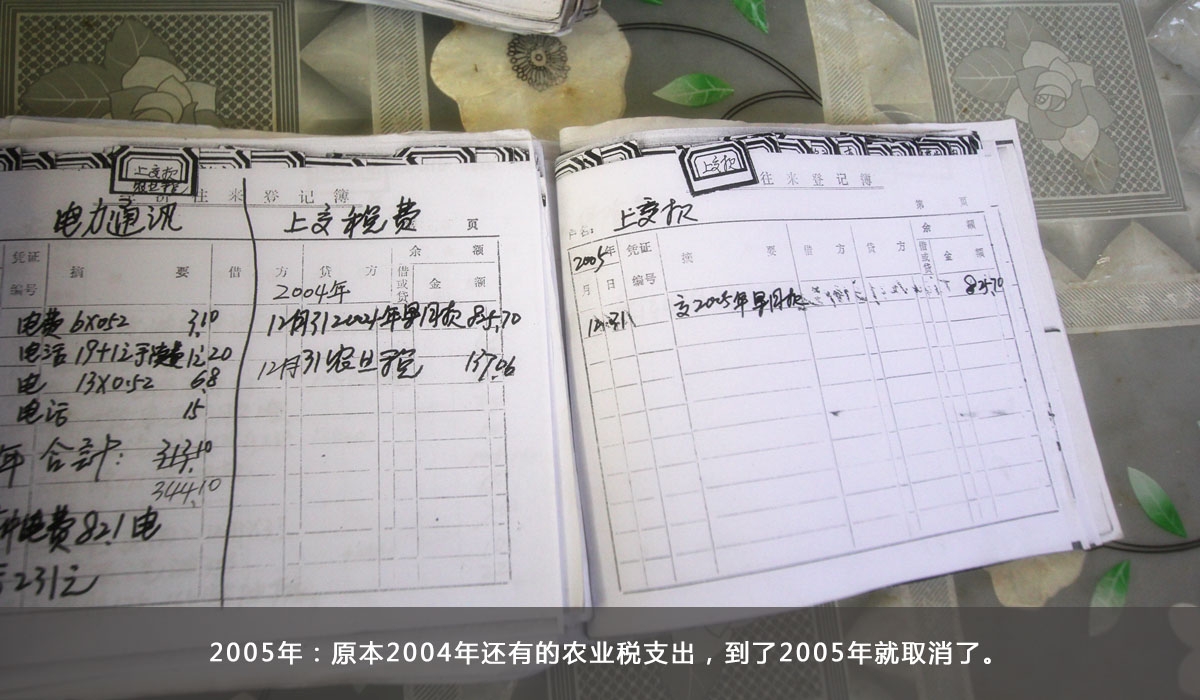 上交款
农业税
往来登记簿
电力通讯
上交税费
页
凭证
编号
摘要
借方
贷方
借或贷
余额
金额
2004年
电费 6×052 3.10
12月31 2004年 835.70
电话 19+1元手续费 20
12月31 农业税 137.06
电 13×0.52 6.8
电话 15
年合计: 313.10
344.10
电费82.1电
231元
上交款
往来登记簿
第 页
户名: 上交款
2005年
月 日
凭证
编号
摘要
借方
贷方
借或贷
余额
金额
12.31 交2005年 825.70
2005年：原本2004年还有的农业税支出，到了2005年就取消了。